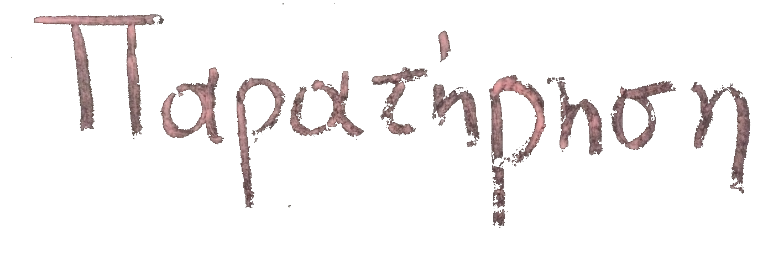 Παρατήρηση